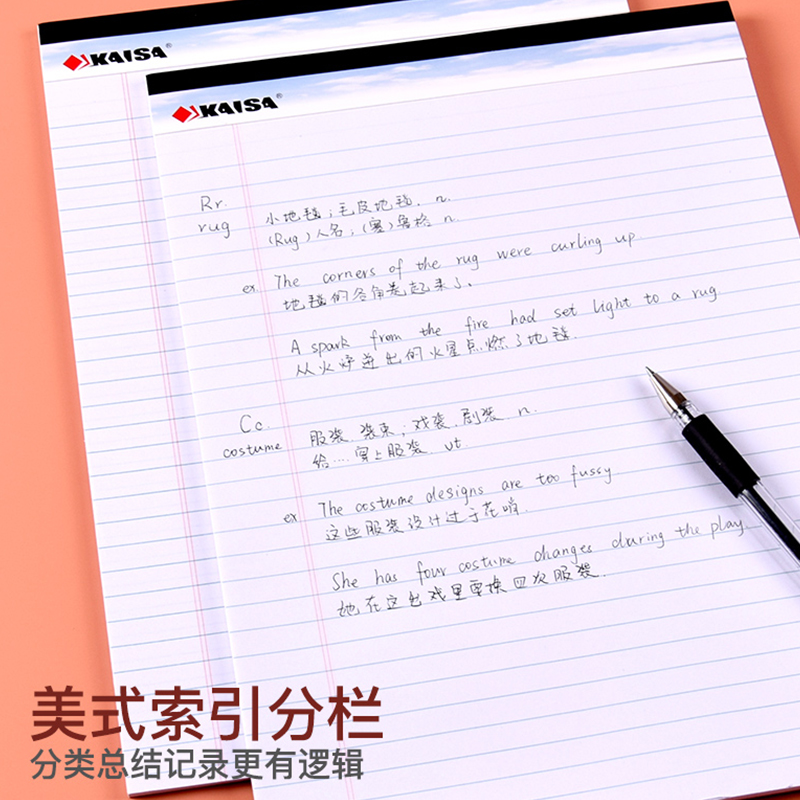 KAISA®
KAISA®
Rr.
rug
小地毯；毛皮地毯. n.
(Rug)人名；(塞)鲁格 n.
ex. The corners of the rug were curling up
地毯的各角卷起来了。
A spark from the fire had set light to a rug
从火炉迸出的火星点燃了地毯.
Cc.
costume
服装.装束；戏装.剧装 n.
给...穿上服装 vt.
ex The costume designs are too fussy.
这些服装设计过于花哨.
She has four costume changes during the play
她在这出戏里要换四次服装.
美式索引分栏
分类总结记录更有逻辑